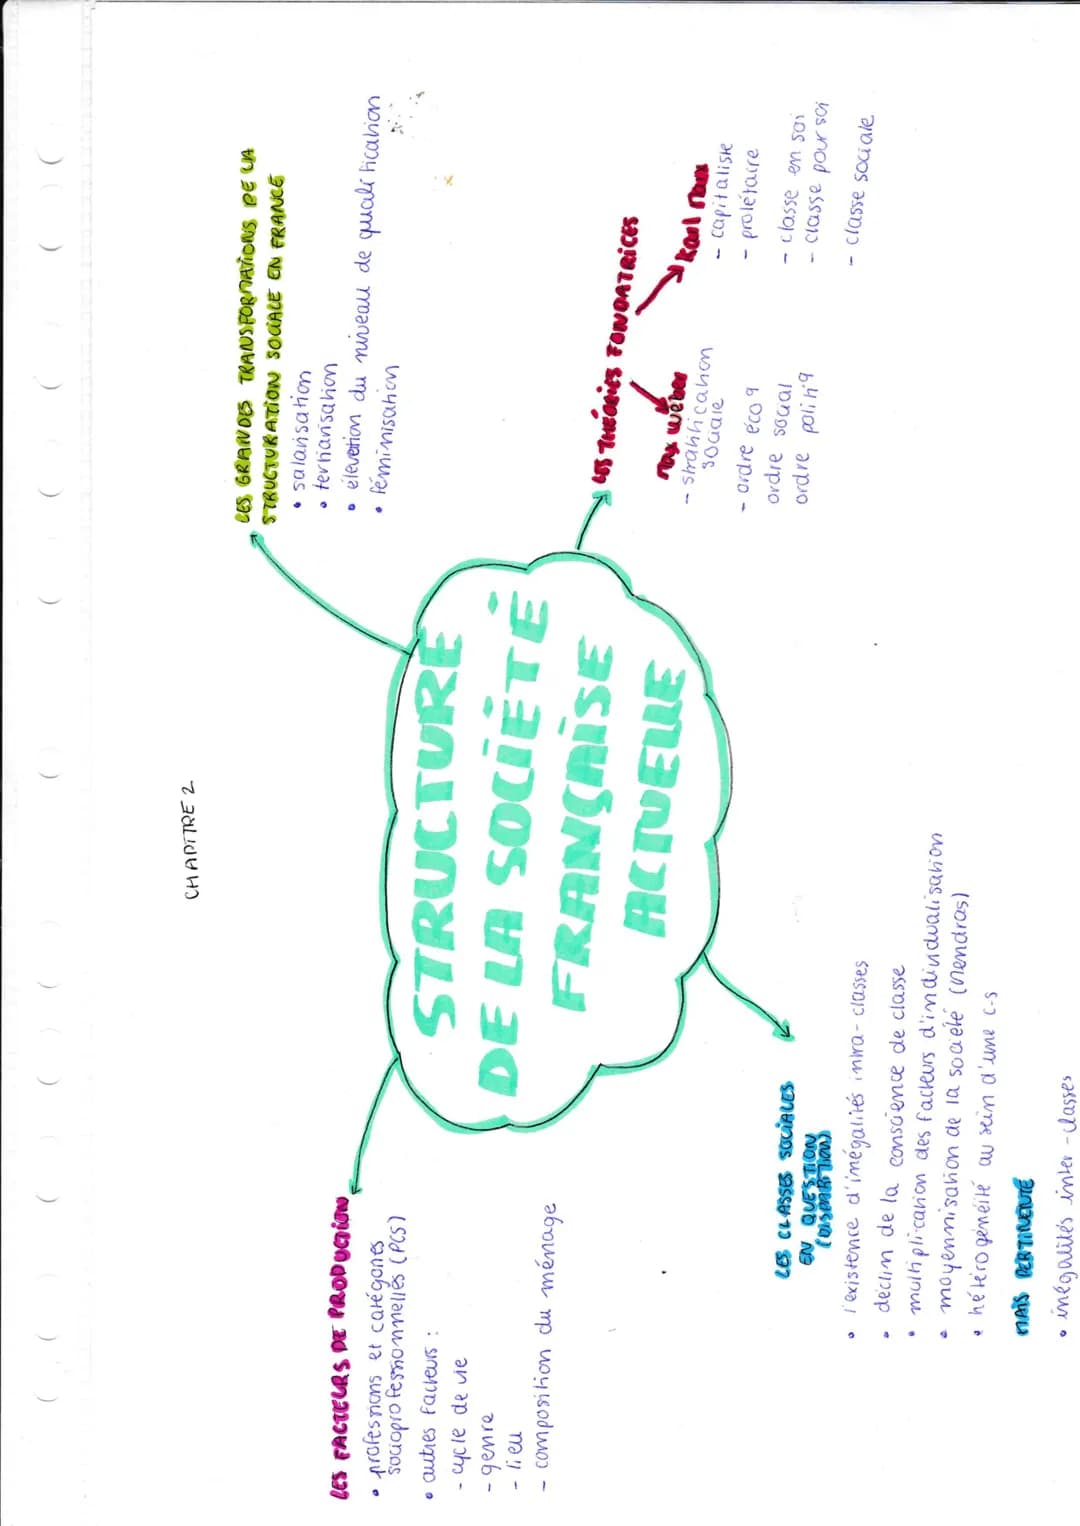 CHAPITRE 2
STRUCTURE
DE LA SOCIÉTÉ
FRANÇAISE
ACTUELLE
LES FACTEURS DE PRODUCTION
• professions et catégories
socioprofessionnelles (PCS)
• autres facteurs :
- cycle de vie
- genre
- lieu
- composition du ménage
LES GRANDES TRANSFORMATIONS DE LA
STRUCTURATION SOCIALE EN FRANCE
• salarisation
• tertiarisation
• élevation du niveau de qualification
• féminisation
LES THÉORIES FONDATRICES
Max Weber
- stratification
sociale
- ordre éco q
ordre social
ordre politiq
Karl Marx
- capitaliste
- prolétaire
- classe en soi
- classe pour soi
- classe sociale
LES CLASSES SOCIALES
EN QUESTION
(DISPARITION)
• l'existence d'inégalités intra-classes
• déclin de la conscience de classe
• multiplication des facteurs d'individualisation
• moyennisation de la société (Mendras)
• hétérogénéité au sein d'une c-s
MAIS PERTINENTE
• inégalités inter-classes